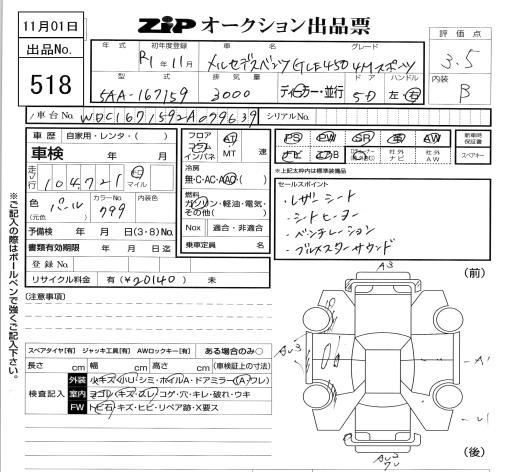 11月01日
ZIP オークション出品票
評価点
3.5
内装
B
出品No.
518
年式 初年度登録 車名 グレード
R1年11月 メルセデスベンツ GLE450 4Mスポーツ
型式 排気量 ドア ハンドル
5AA-167159 3000 ディーラー・並行 5D 左・右
車台No. WDC1671592A079639 シリアルNo.
車歴 自家用・レンタ・( )
車検 年 月
走行 104,721 km マイル
色 (元色) パール カラーNo. 799 内装色
予備検 年 月 日(3・8) No.
書類有効期限 年 月 日迄
登録No.
リサイクル料金 有(¥20140) 未
フロア コラム インパネ AT MT 速
冷房
無・C・AC・AAC
燃料
ガソリン・軽油・電気・その他( )
Nox 適合・非適合
乗車定員 名
PS PW SR 革 AW
ナビ エアB 社外ナビ 社外AW
新車時保証書
スペアキー
※上記太枠内は標準装備品
セールスポイント
・レザーシート
・シートヒーター
・ベンチレーション
・ブルメスターサウンド
※ご記入の際はボールペンで強くご記入下さい。
(注意事項)
スペアタイヤ[有] ジャッキ工具[有] AWロックキー[有] ある場合のみ○
長さ cm 幅 cm 高さ cm (車検証上の寸法)
検査記入
外装 小キズ・小U・シミ・ホイルA・ドアミラー(A・ワレ)
室内 ヨゴレ・キズ・スレ・コゲ・穴・キレ・破れ・ウキ
FW トビ石・キズ・ヒビ・リペア跡・X要ス
(前)
A3
A1
(後)